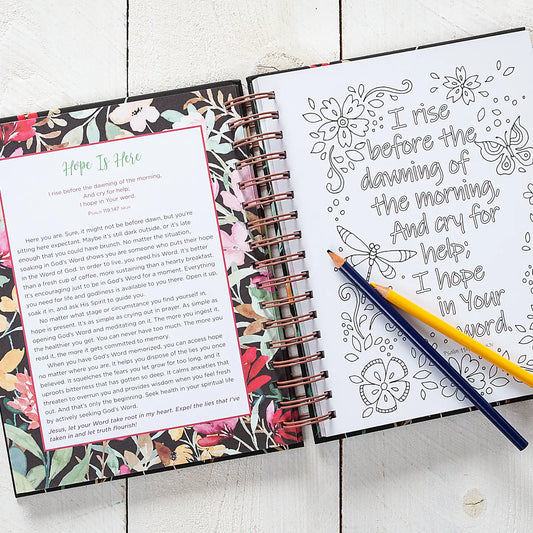 Hope Is Here
I rise before the dawning of the morning,
And cry for help;
I hope in Your word.
Psalm 119:147 NKJV
Here you are. Sure, it might not be before dawn, but you're
sitting here expectant. Maybe it's still dark outside, or it's late
enough that you could have brunch. No matter the situation,
soaking in God's Word shows you are someone who puts their hope
in the Word of God. In order to live, you need his Word. It's better
than a fresh cup of coffee, more sustaining than a hearty breakfast.
It's encouraging just to be in God's Word for a moment. Everything
you need for life and godliness is available to you there. Open it up,
soak it in, and ask His Spirit to guide you.
No matter what stage or circumstance you find yourself in,
hope is present. It's as simple as crying out in prayer. As simple as
opening God's Word and meditating on it. The more you ingest it,
the healthier you get. You can never have too much. The more you
read it, the more it gets committed to memory.
When you have God's Word memorized, you can access hope
no matter where you are. It helps you dispose of the lies you once
believed. It squelches the fears you let grow for too long, and it
uproots bitterness that has gotten so deep. It calms anxieties that
threaten to overrun you and provides wisdom when you feel free
out. And that's only the beginning. Seek health in your spiritual life
by actively seeking God's Word.
Jesus, let your Word take root in my heart. Expel the lies that I've
taken in and let truth flourish!
I rise
before the
dawning of
the morning,
And cry for
help;
I hope
in Your
word.